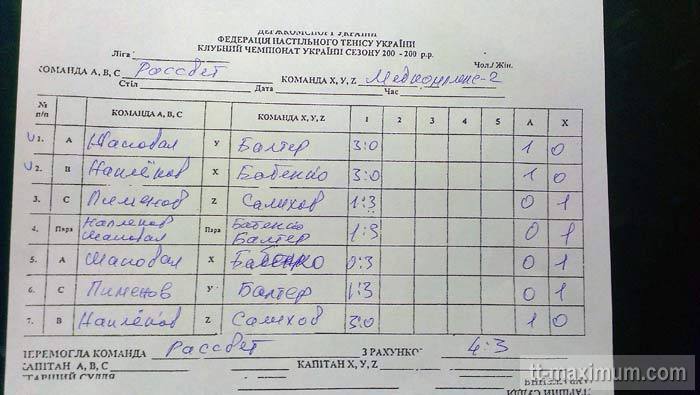 ДЕРЖКОМСПОРТ УКРАЇНИ
ФЕДЕРАЦІЯ НАСТІЛЬНОГО ТЕНІСУ УКРАЇНИ
КЛУБНИЙ ЧЕМПІОНАТ УКРАЇНИ СЕЗОНУ 200 - 200 р.р.
Ліга Чол./ Жін.
КОМАНДА А, В, С Рассвет КОМАНДА X, У, Z Медкомплекс-2
Стіл Дата Час
№ п/п КОМАНДА А, В, С КОМАНДА X, У, Z 1 2 3 4 5 А X
1. А Шаповал У Балтер 3:0 1 0
2. В Наплёков X Бабенко 3:0 1 0
3. С Пименов Z Салихов 1:3 0 1
4. Пара Наплеков Шаповал Пара Бабенко Балтер 1:3 0 1
5. А Шаповал X Бабенко 0:3 0 1
6. С Пименов У Балтер 1:3 0 1
7. В Наплёков Z Салихов 3:0 1 0
ПЕРЕМОГЛА КОМАНДА Рассвет З РАХУНКО 4:3
КАПІТАН А, В, С КАПІТАН X, У, Z
СТАРШИЙ СУДДЯ
tt-maximum.com